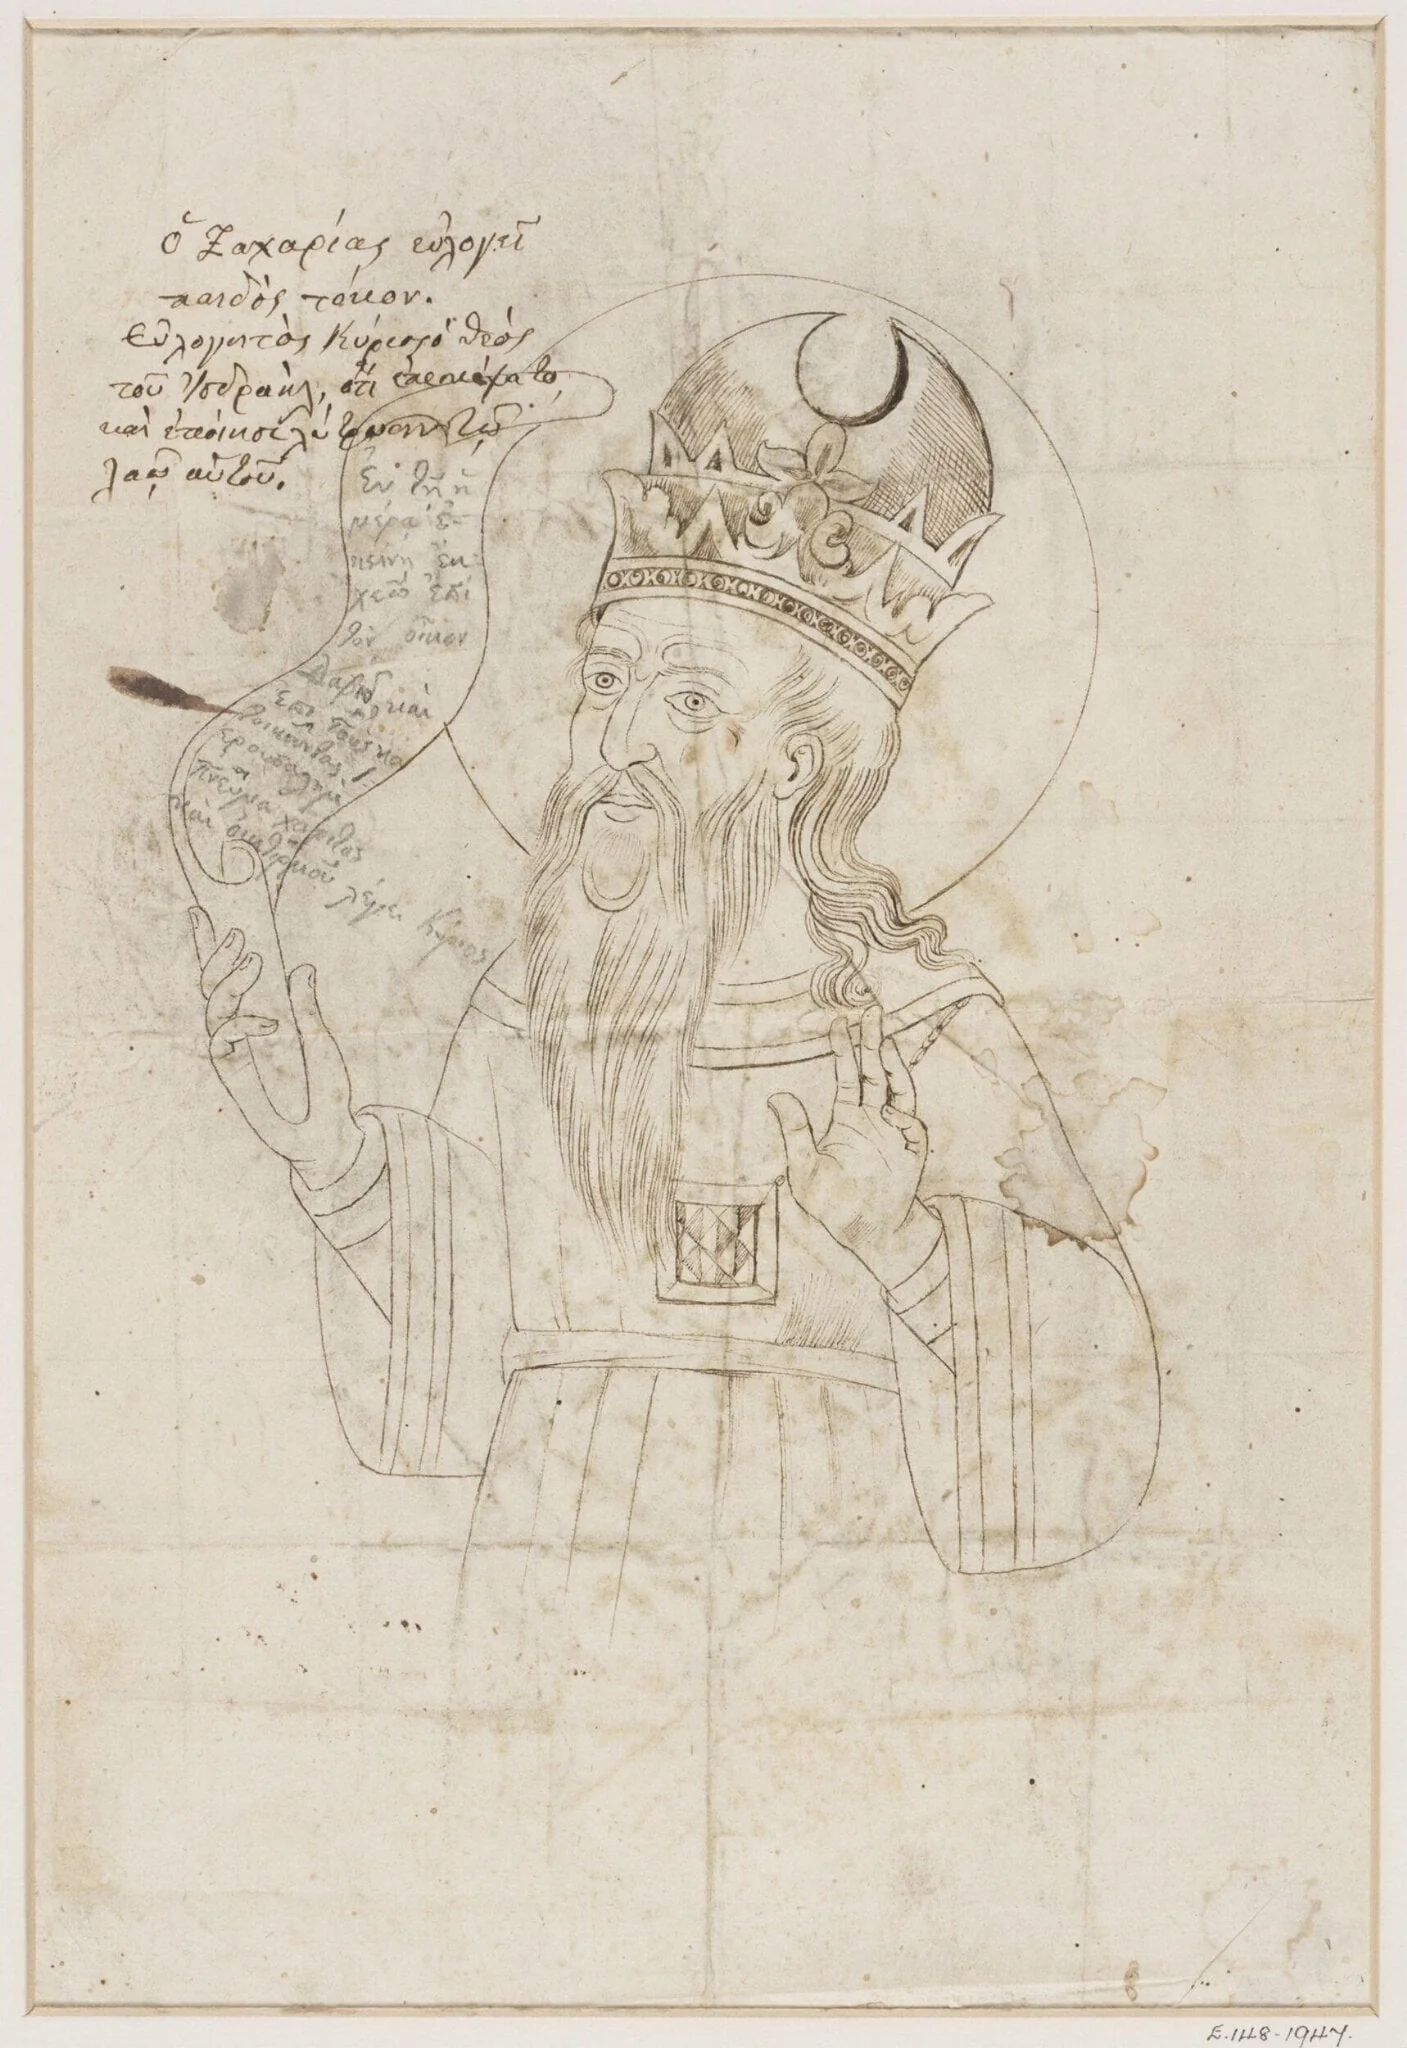 ὁ Ζαχαρίας εὐλογεῖ
παιδὸς τόκον.
Εὐλογητὸς Κύριος ὁ θεός
τοῦ Ἰσδραὴλ, ὅτι ἐπεσκέψατο
καὶ ἐποίησε λύτρωσιν τῷ
λαῷ αὐτοῦ.
Ἐν τῇ ἡ
μέρα ἐ-
κείνῃ ἐκ-
χεῶ ἐπὶ
τὸν οἶκον
Δαβὶδ καὶ
ἐπὶ τοὺς κα
τοικοῦντας Ἱ
ερουσαλὴμ
πνεῦμα χάριτος
καὶ οἰκτιρμοῦ λέγει Κύριος
E.148-1947.